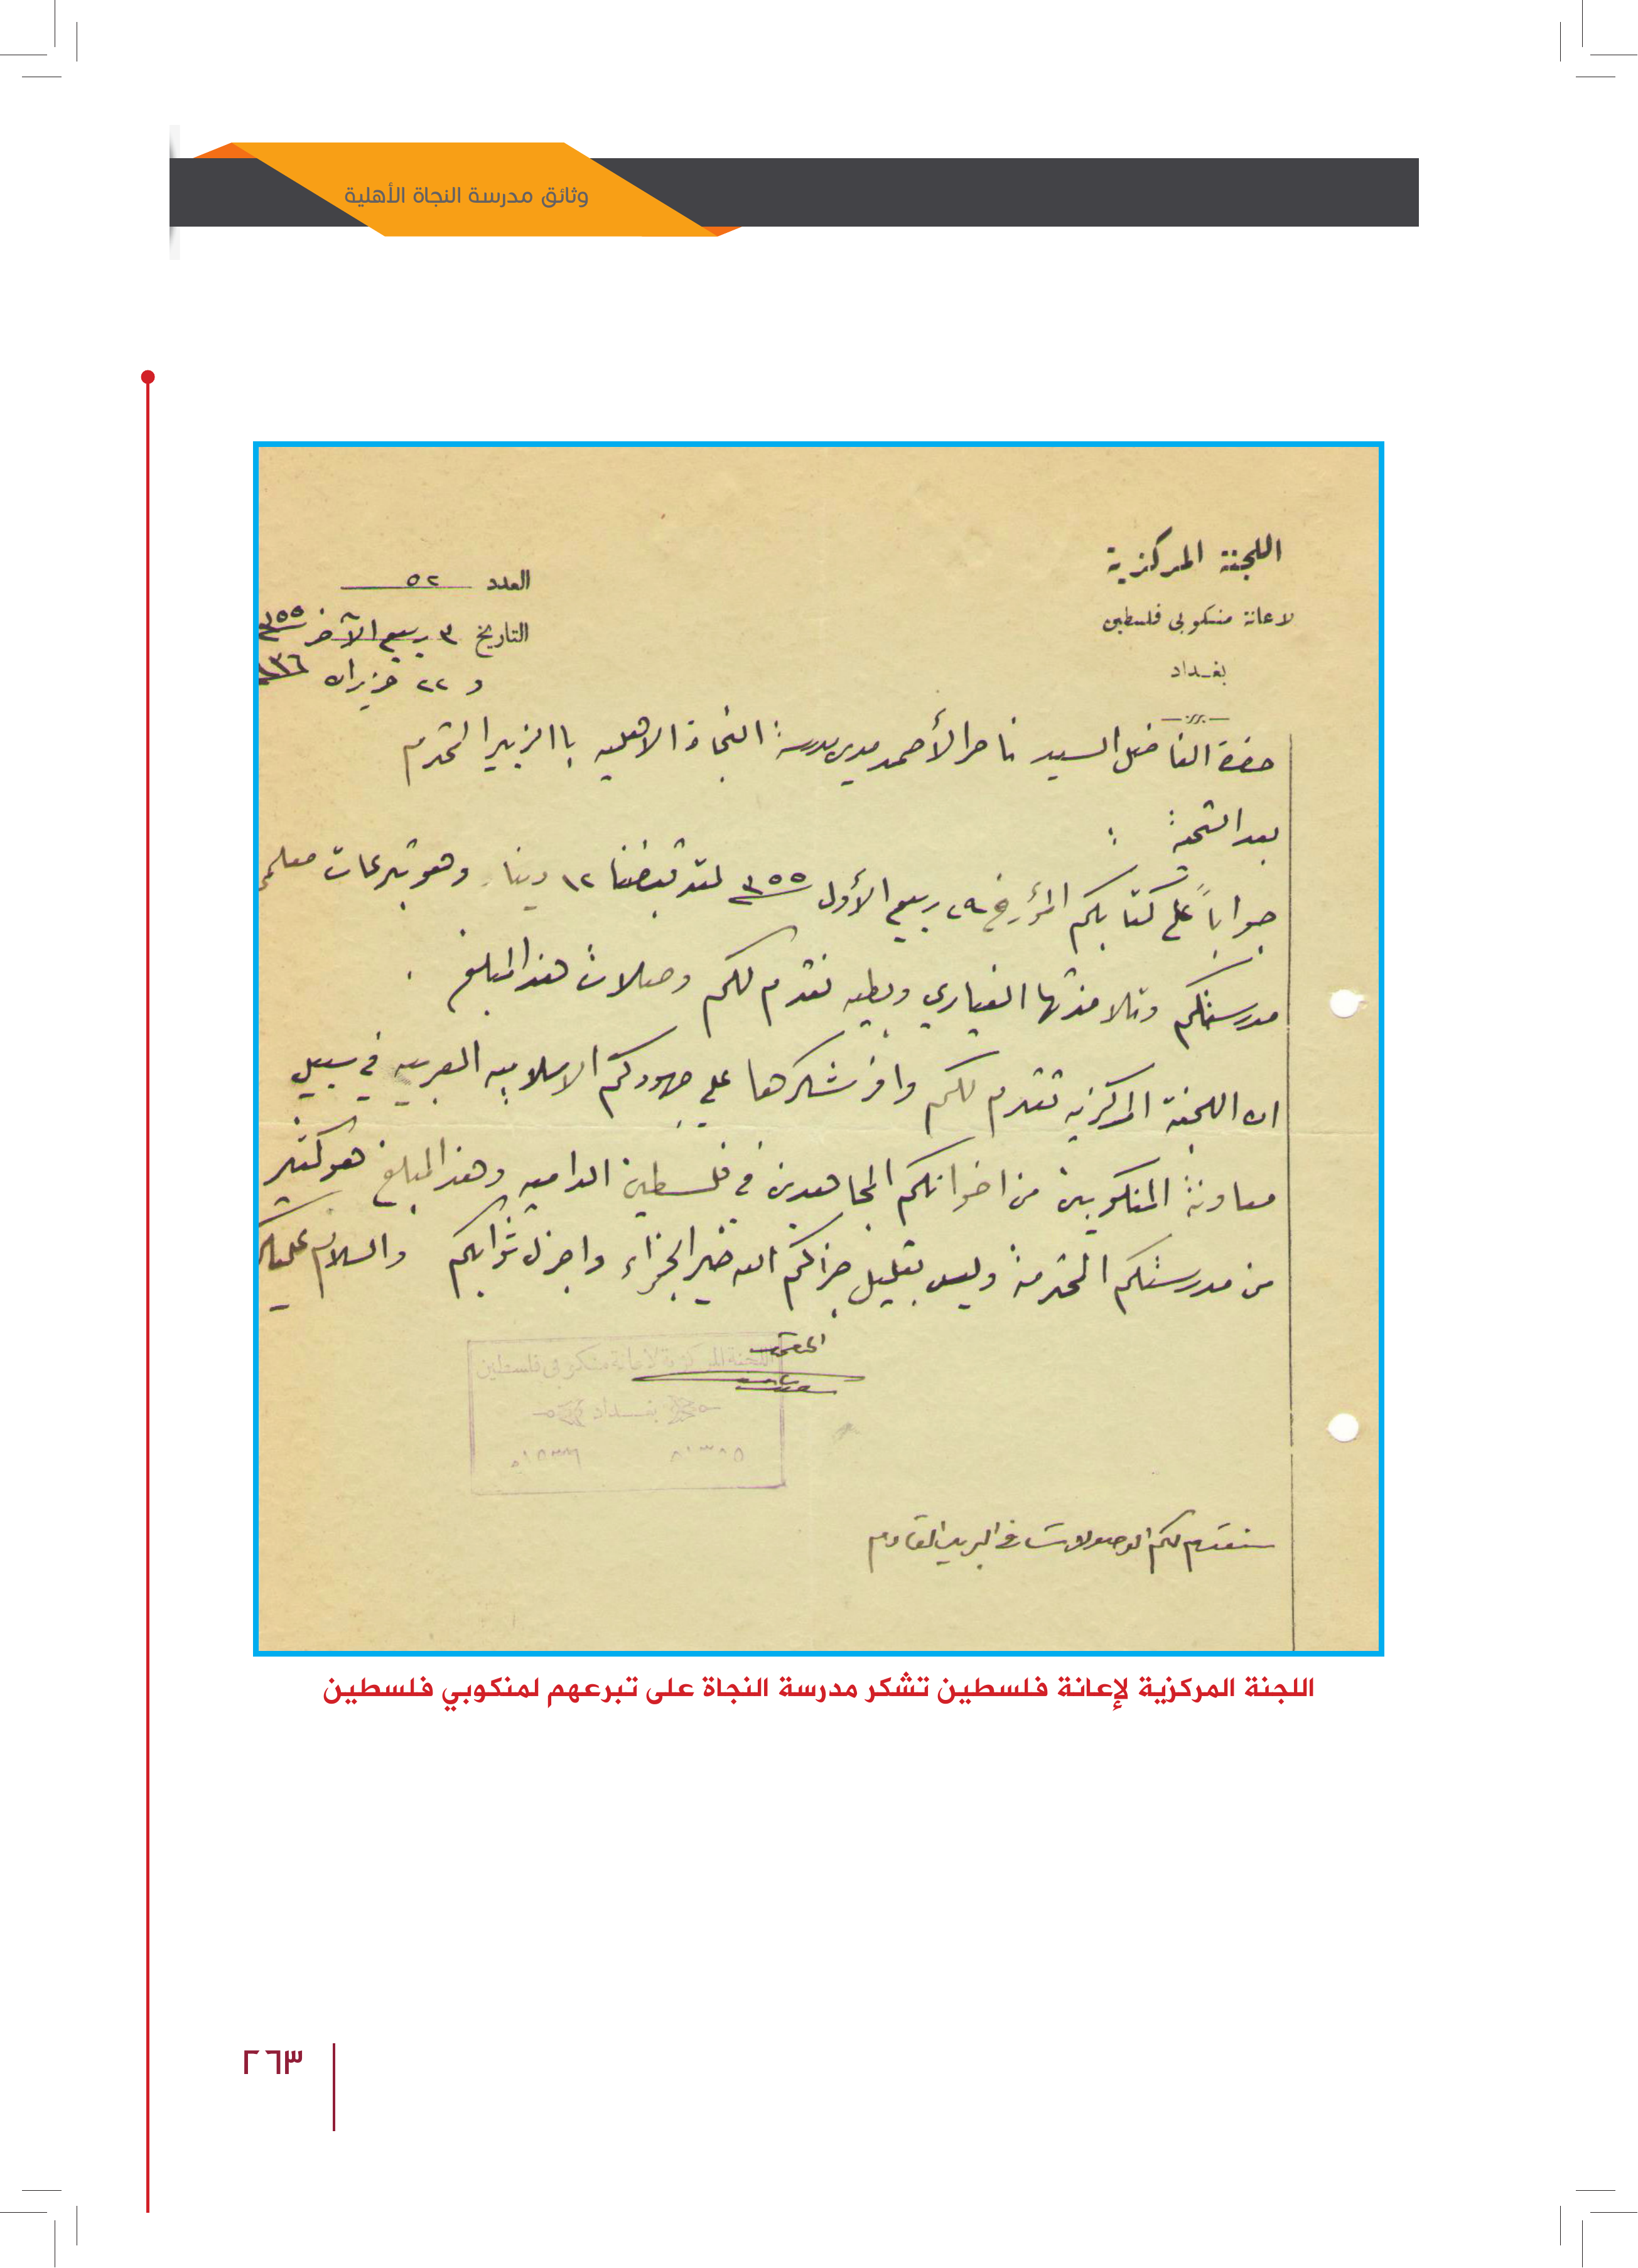 وثائق مدرسة النجاة الأهلية
اللجنة المركزية
لاعانة منكوبى فلسطين
بغـداد
العدد ٥٢
التاريخ ٣ ربيع الآخر ٣٥٥
و ٢٢ حزيران ٩٣٦
حضرة الفاضل السيد ناصر الأحمد مدير مدرسة النجاة الاهلية باالزبير المحترم
بعد التحية :
جواباً على كتابكم المؤرخ ٢٩ ربيع الأول ٣٥٥ لقد قبضنا ١٢ دينار وهو تبرعات معلمي
مدرستكم وتلامذتها الغيارى وبطيه نقدم لكم وصلات هذا المبلغ .
ان اللجنة المركزيه تقدم لكم وافر شكرها على جهودكم الاسلاميه العربيه في سبيل
معاونة المنكوبين من اخوانكم المجاهدين في فلسطين الداميه وهذا المبلغ هو كثير
من مدرستكم المحترمة وليس بقليل جزاكم الله خير الجزاء واجزل ثوابكم والسلام عليكم
اللجنة المركزية لاعانة منكوبى فلسطين
بغـداد
سنقدم لكم الوصولات في البريد القادم
اللجنة المركزية لإعانة فلسطين تشكر مدرسة النجاة على تبرعهم لمنكوبي فلسطين
٢٦٣